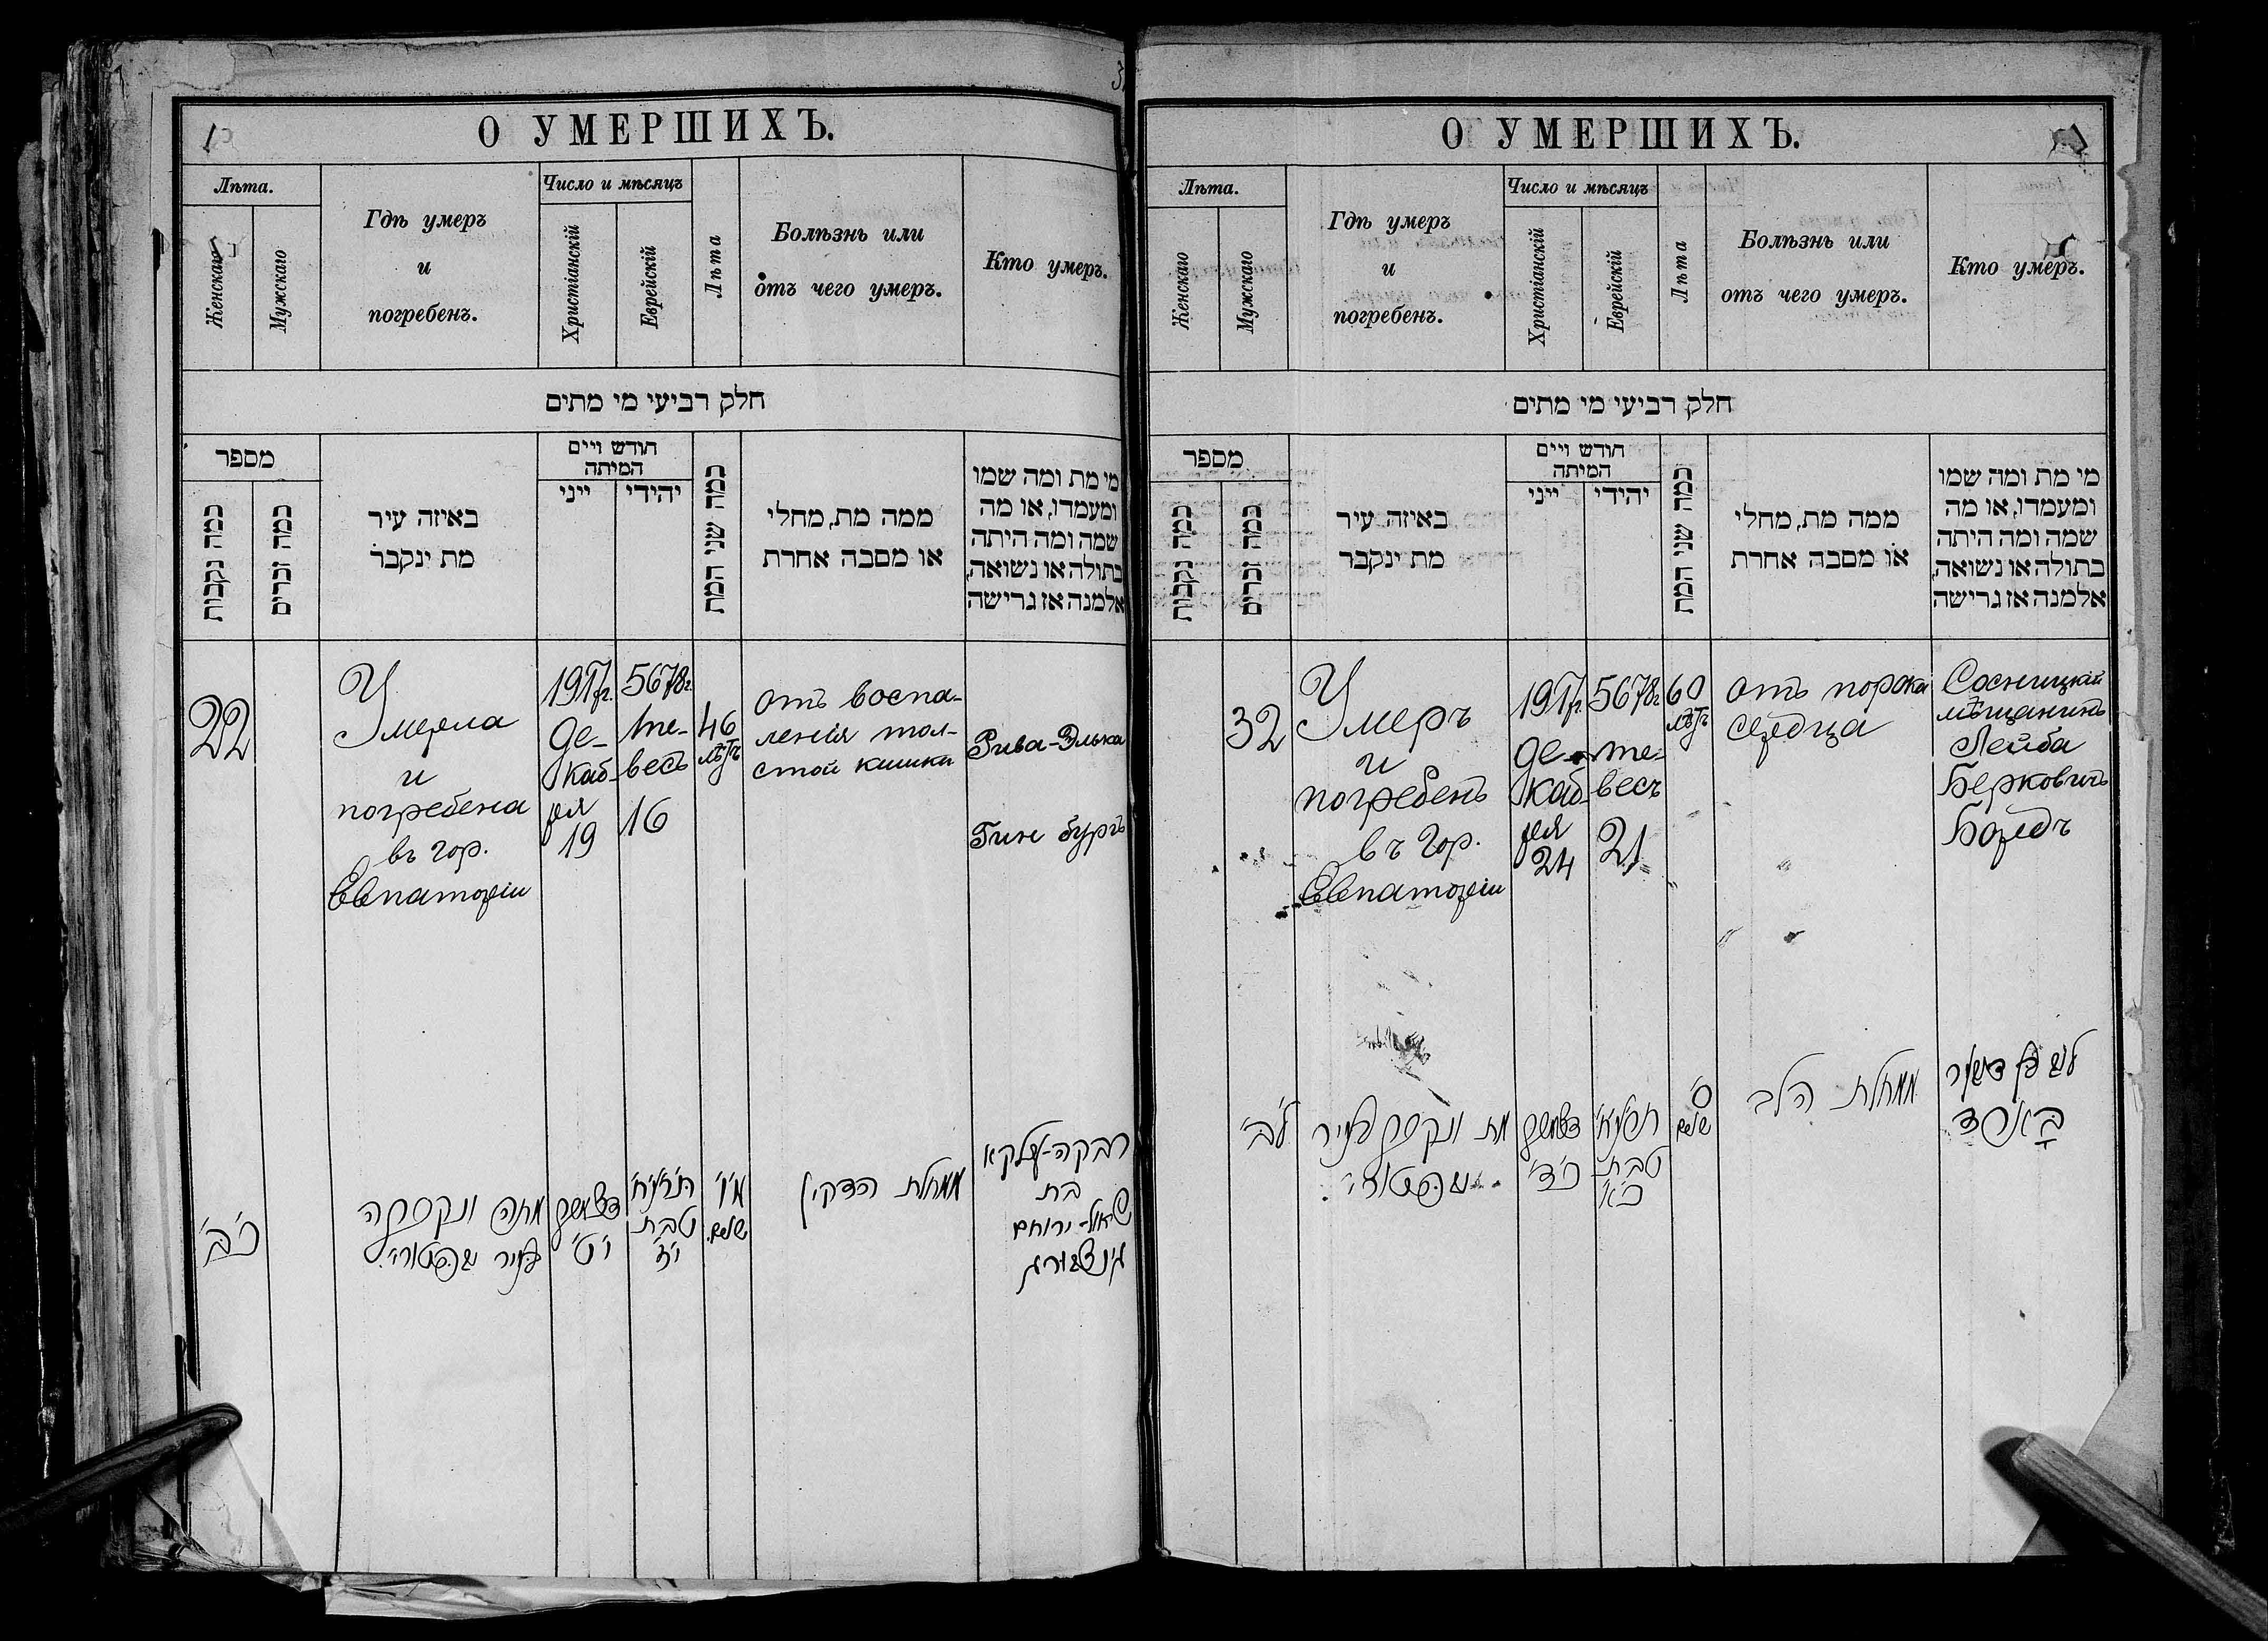 О УМЕРШИХЪ.
Лѣта.
Женскаго
Мужскаго
Гдѣ умеръ
и
погребенъ.
Число и мѣсяцъ
Христіанскій
Еврейскій
Лѣта
Болѣзнь или
отъ чего умеръ.
Кто умеръ.
חלק רביעי מי מתים
מספר
כמה נקבות
כמה זכרים
באיזה עיר
מת ינקבר
חודש ויים
המיתה
ייני
יהודי
כמה שני המת
ממה מת, מחלי
או מסבה אחרת
מי מת ומה שמו
ומעמדו, או מה
שמה ומה היתה
בתולה או נשואה,
אלמנה אז גרישה
22
Умерла
и
погребена
въ гор.
Евпаторіи
1917г.
де-
каб-
ря
19
5678г.
те-
весъ
16
46
лѣтъ
отъ воспа-
ленія тол-
стой кишки
Рива-Элька
Гинсбургъ
כ'ב'
מתה ונקברה
בעיר
דעצעמבר
י'ט'
תרע'ח'
טבת
מ'ו'
שנים
ממחלת הדקין
רבקה-עלקא
בת
שאול-ירוחם
גינצבורג
О УМЕРШИХЪ.
Лѣта.
Женскаго
Мужскаго
Гдѣ умеръ
и
погребенъ.
Число и мѣсяцъ
Христіанскій
Еврейскій
Лѣта
Болѣзнь или
отъ чего умеръ.
Кто умеръ.
חלק רביעי מי מתים
מספר
כמה נקבות
כמה זכרים
באיזה עיר
מת ינקבר
חודש ויים
המיתה
ייני
יהודי
כמה שני המת
ממה מת, מחלי
או מסבה אחרת
מי מת ומה שמו
ומעמדו, או מה
שמה ומה היתה
בתולה או נשואה,
אלמנה אז גרישה
32
Умеръ
и
погребенъ
въ гор.
Евпаторіи
1917г.
де-
каб-
ря
24
5678г
те-
весъ
21
60
лѣтъ
отъ порока
сердца
Сосницкій
мѣщанинъ
Лейба
Берковичъ
Бордъ
ל'ב'
מת ונקבר בעיר
כ'ד'
טבת
כ'א'
ס'
שנים
ממחלת הלב
בארד